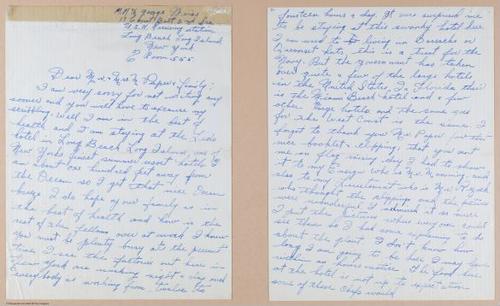 George
U.S.N. Receiving station
Long Beach Long Island
New York
Room 555
Dear Mr. & Mrs. Pape & Family:
I am very sorry for not writing any
sooner and you will have to excuse my
scribbling. Well I am in the best of
health and I am staying at the Lido
hotel in Long Beach Long Island, one of
New York's finest summer resort hotels. I
am one hundred feet away from
the Ocean so I get that nice Ocean
breeze. I do hope your family is in
the best of health and how is the
rest of the fellows over at work. I know
you must be plenty busy at the present
time. I see the factories out here in
New York are working night & day and
Everybody is working from twelve to
fourteen hours a day. It sure surprised me
to be staying at this swanky hotel here
I am used to living in Barracks or
Quonset huts, this is a treat for the
Navy. But the Government has taken
over quite a few of the large hotels
in the United States. In Florida there
is the Miami Beach hotel and a few
other large hotels and the same goes
for the West Coast is the same. I
forgot to thank you Mr. Pape for the
nice booklet & clipping that you sent
me on flag raising day. I had to show
it to my Ensign who is Mr. Manning, and
also to my Lieutenant who is Mr.
who thought the clipping and the picture
were wonderful. I showed it so much
I put the Picture where everyone could
see them so I had some reason to
about the plant. I don't know how
long I am going to be here, I may
within an hours notice. The food here
at the hotel is not up to expectation
some of these Chefs would